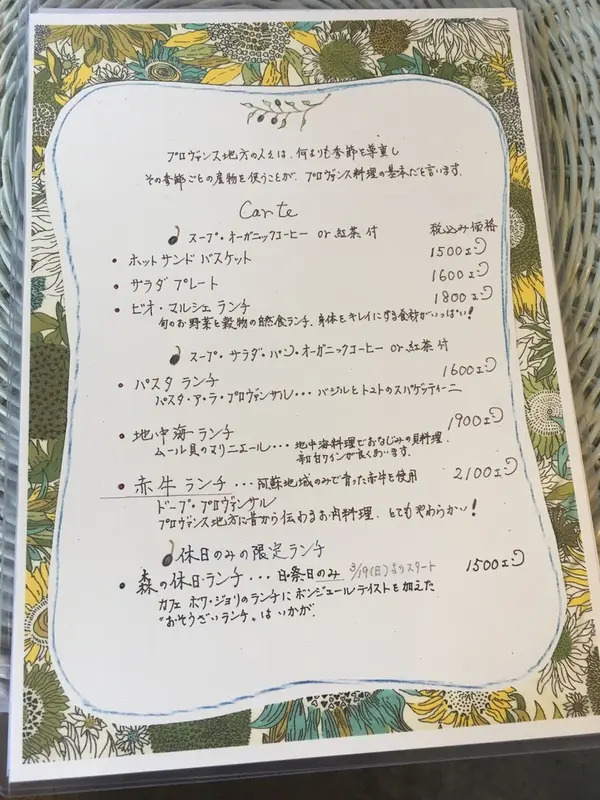 プロヴァンス地方の人々は、何よりも季節を尊重し
その季節ごとの産物を使うことが、プロヴァンス料理の基本だと言います。
Carte
スープ・オーガニックコーヒー or 紅茶 付 税込み価格
・ホットサンド バスケット 1500エン
・サラダ プレート 1600エン
・ビオ・マルシェ ランチ 1800エン
旬のお野菜と穀物の自然食ランチ、身体をキレイにする食材がいっぱい!
スープ・サラダ・パン・オーガニックコーヒー or 紅茶 付
・パスタ ランチ 1600エン
パスタ・ア・ラ・プロヴァンサル・・・バジルとトマトのスパゲッティーニ
・地中海ランチ 1900エン
ムール貝のマリニエール・・・地中海料理でおなじみの貝料理、
辛口白ワインが良くあいます。
・赤牛ランチ・・・阿蘇地域のみで育った赤牛を使用 2100エン
ドーブ・プロヴァンサル
プロヴァンス地方に昔から伝わるお肉料理、とてもやわらかい!
休日のみの限定ランチ
・森の休日・ランチ・・・日・祭日のみ 3/19(日)よりスタート 1500エン
カフェ ボワ・ジョリのランチにボンジュールテイストを加えた
"おそうざいランチ"はいかが。